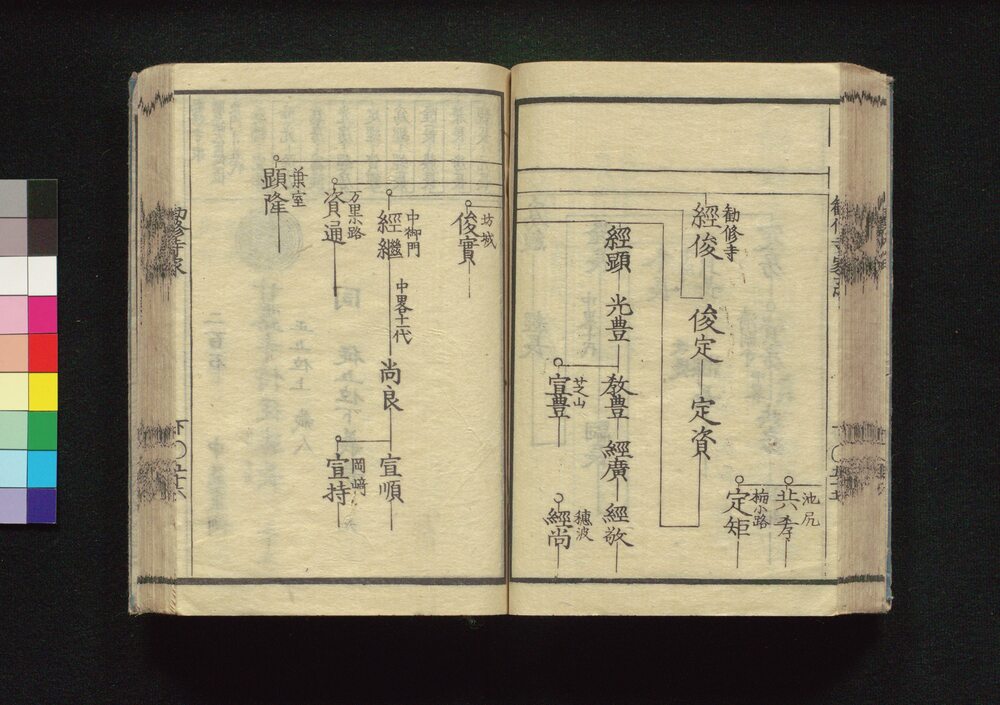 池尻
共孝
梅小路
定矩
勧修寺
經俊
俊定
定資
經顕
光豊
教豊
經廣
經敬
芝山
宣豊
穗波
經尚
坊城
俊實
中御門
經繼
中畧十一代
尚良
宣順
岡﨑
宣持
万里小路
資通
葉室
顕隆
勧修寺家